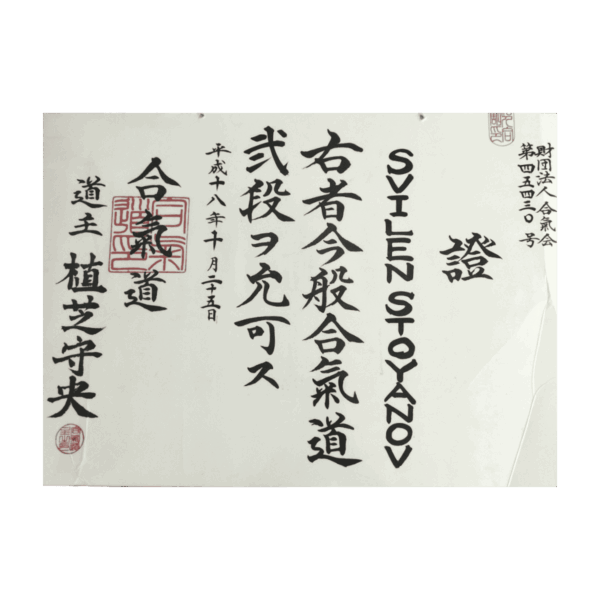 財団法人 合氣会
第四五四三〇号
證
SVILEN STOYANOV
右者今般合氣道
弐段ヲ允可ス
平成十八年十月二十五日
合氣道
道主 植芝守央